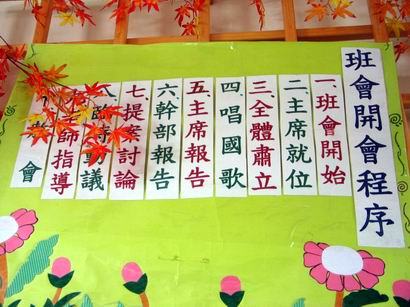 班會開會程序
一、班會開始
二、主席就位
三、全體肅立
四、唱國歌
五、主席報告
六、幹部報告
七、提案討論
八、臨時動議
師指導
會